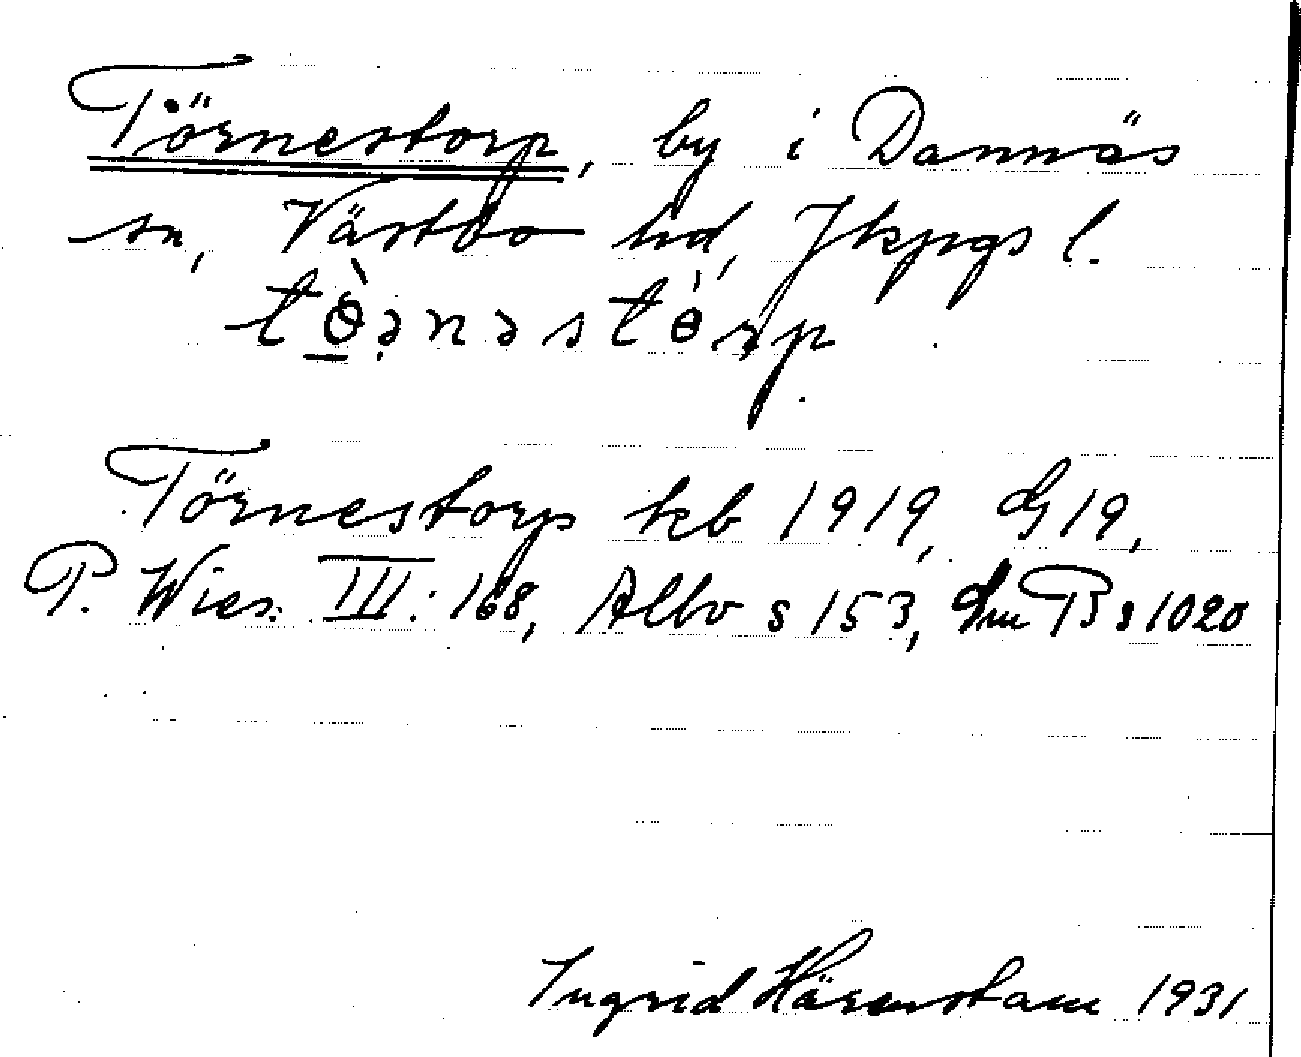 Törnestorp, by i Dannäs
sn, Västbo hd, Jkpgs l.
tɵ̀ənəstɵ́rp
Törnestorp kb 1919, G19,
P. Wies. III: 168, Allvo s 153, Sm B s 1020
Ingrid Härenstam 1931